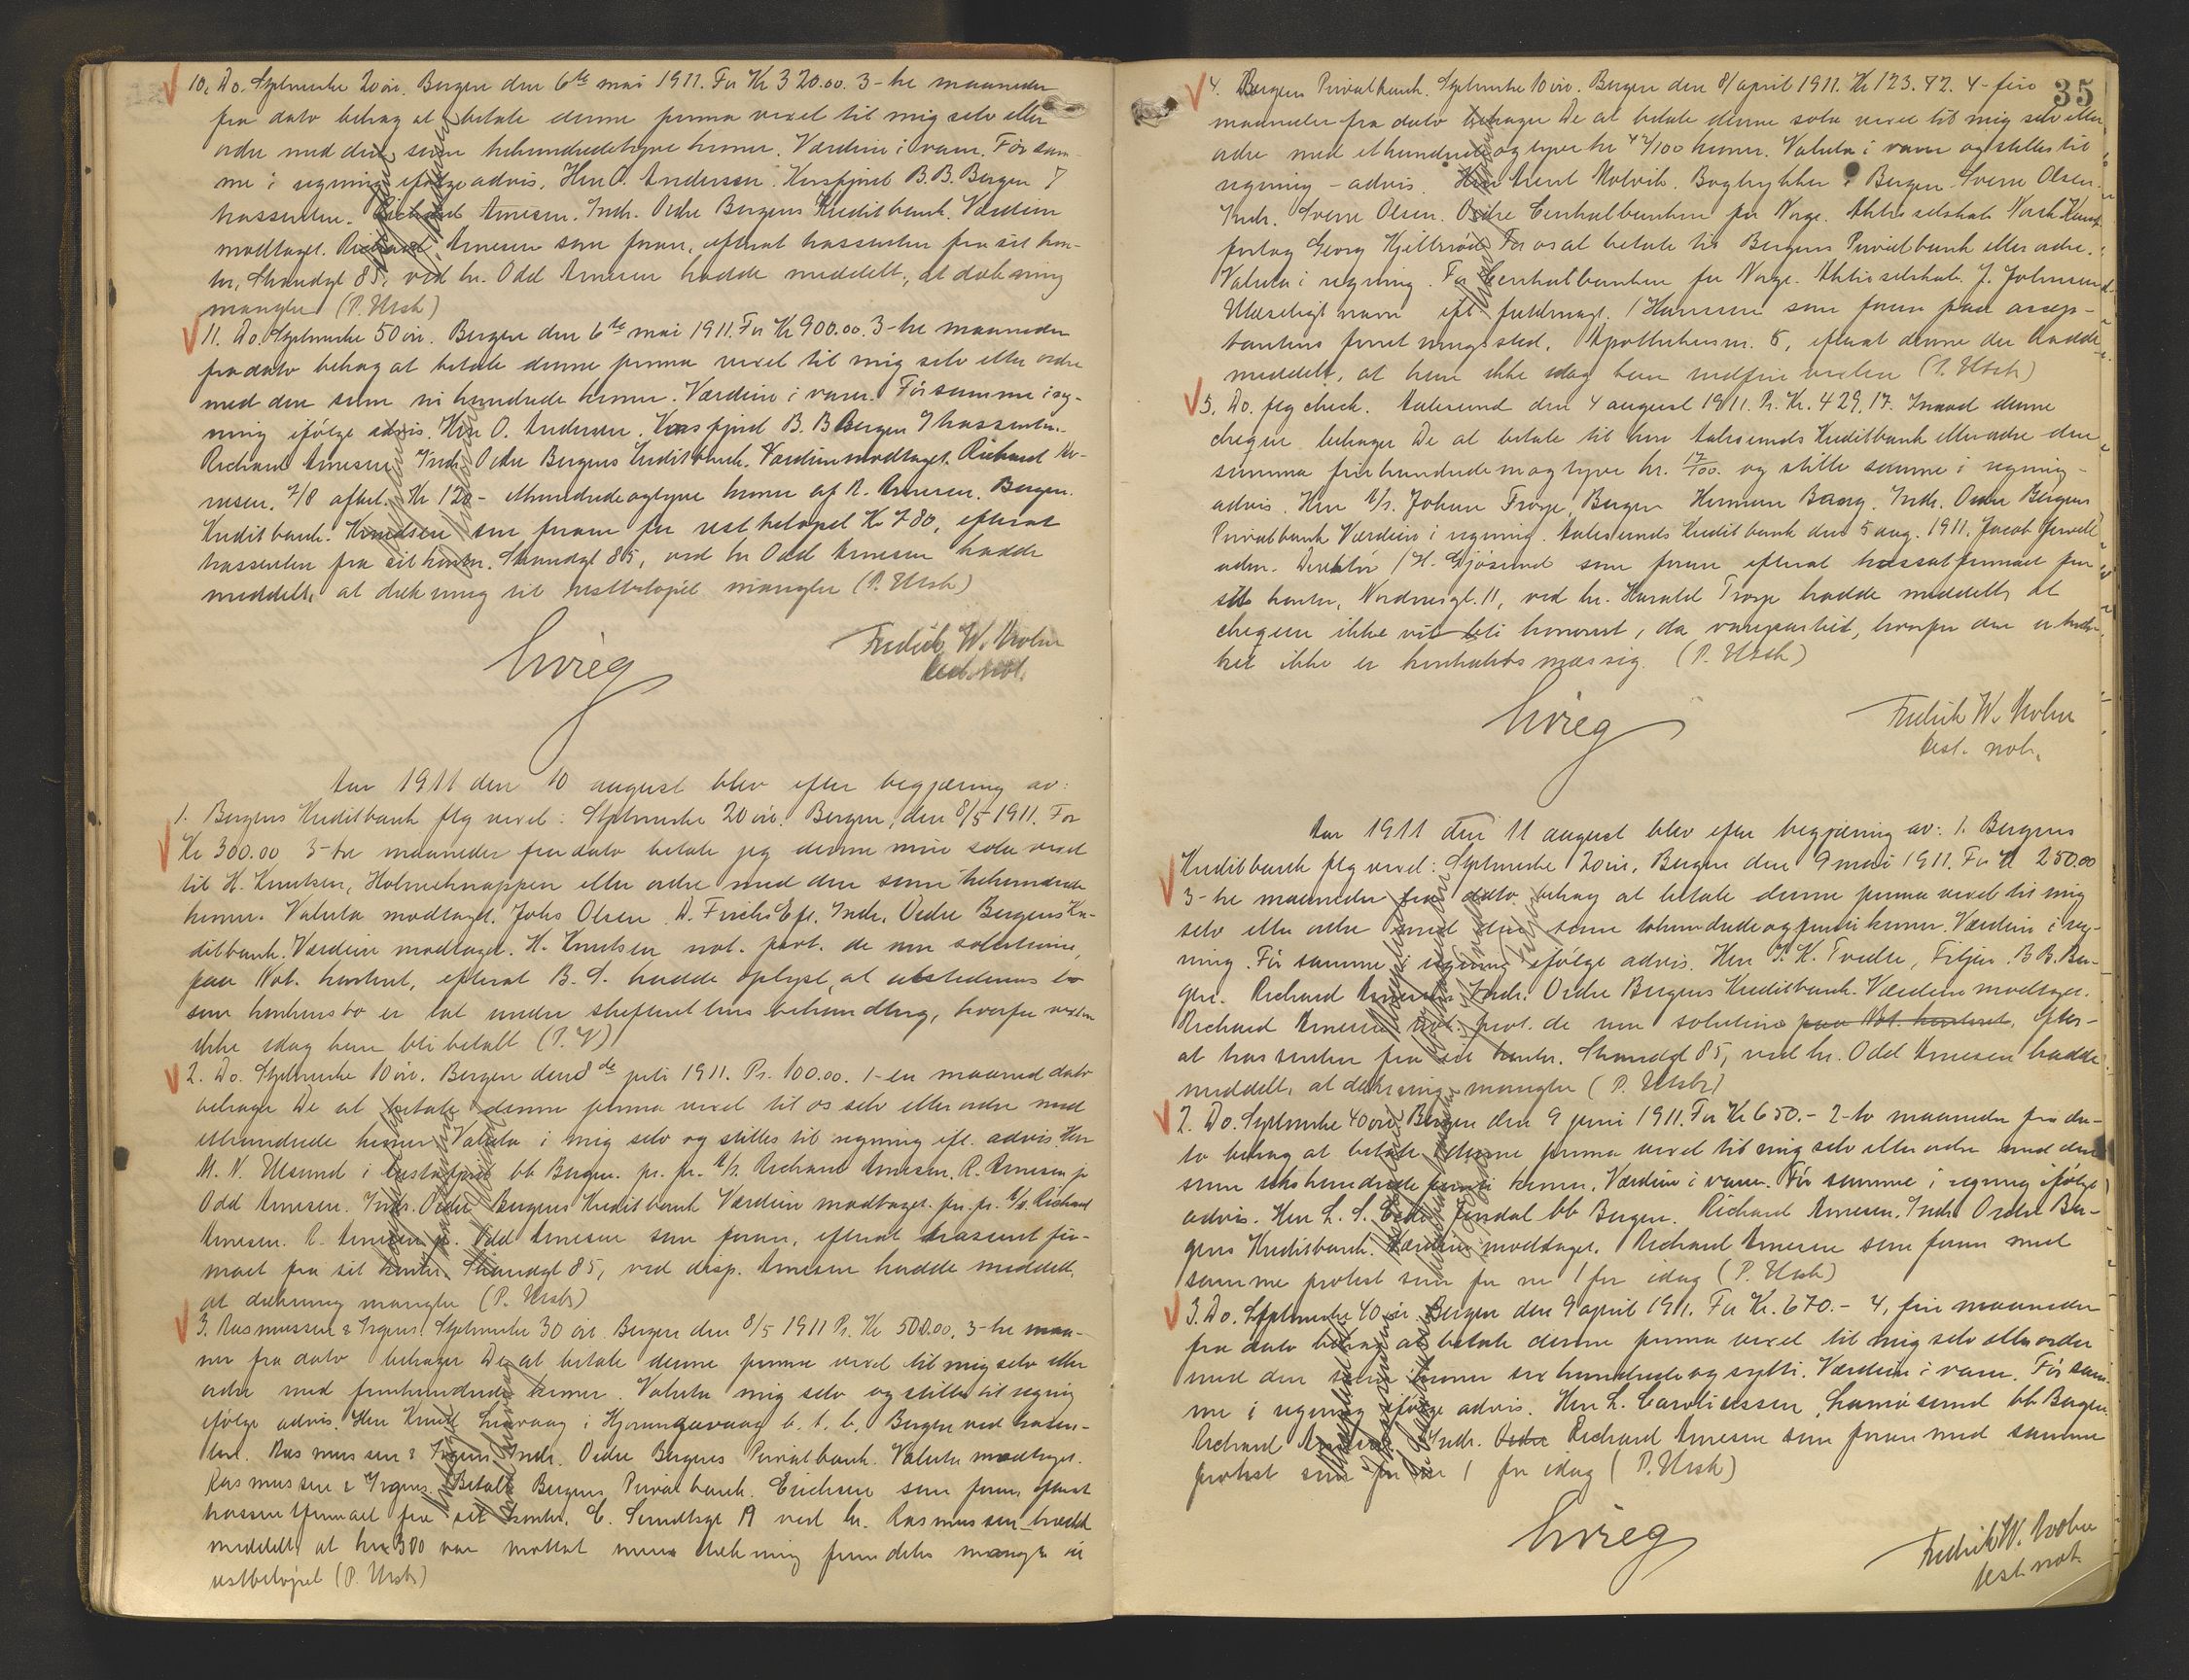 10. Do. Stplmerke 20 øre. Bergen den 6te mai 1911. For Kr 320.00. 3-tre maaneder
fra dato behag at betale denne prima vexel til mig selv eller
ordre med den sum trehundredetyve kroner. Værdien i varer. Før sam-
me i regning ifølge advis. Herr O. Andersen. Korsfjord B.B. Bergen
trassenten. Richard Arnesen. Indr. Ordre Bergens Kreditbank. Værdien
modtaget. Richard Arnesen som foran, efterat trassenten fra sit kon-
tor, Strandgt 85, ved hr. Odd Arnesen hadde meddelt, at dækning
mangler (P. Utsk)
11. Do. Stplmerke 50 øre. Bergen den 6te mai 1911. For Kr 900.00. 3-tre maaneder
fra dato behag at betale denne prima vexel til mig selv eller ordre
med den sum ni hundrede kroner. Værdien i varer. Før samme i reg-
ning ifølge advis. Herr O. Andersen. Korsfjord B. B Bergen trassenten.
Richard Arnesen Indr. Ordre Bergens Kreditbank. Værdien modtaget. Richard Ar-
nesen. 7/8 afbet. Kr 120- ethundredeogtyve kroner af R. Arnesen. Bergen.
Kreditbank. Knudsen som foran for restbeløpet Kr 780, efterat
trassenten fra sit kontor. Strandgt 85, ved hr Odd Arnesen hadde
meddelt, at dækning til restbeløpet mangler (P. Utsk)
Fredrik W. Krohn
const. not.
Aar 1911 den 10 august blev efter begjæring av:
1. Bergens Kreditbank flg vexel: Stplmerke 20 øre. Bergen, den 8/5 1911. For
Kr 300.00 3-tre maaneder fra dato betale jeg denne min sola vexel
til H. Knutsen, Holmeknappen eller ordre med den sum trehundrede
kroner. Valuta modtaget. Johs Olsen. Indr. Ordre Bergens Kre-
ditbank. Værdien modtaget. H. Knutsen not. prot. de non solutione,
paa Not. kontoret, efterat B. S. hadde oplyst, at utstederens bo
som konkursbo er tat under skifterettens behandling, hvorfor vexlen
ikke idag kan bli betalt (P. V)
2. Do. Stplmerke 10 øre. Bergen den 8de juli 1911. Pr. 100.00. 1-en maaned dato
behager De at betale denne prima vexel til os selv eller ordre med
ethundrede kroner Valuta i mig selv og stilles til regning ifl. advis Herr
M. N. Ulsund i bb Bergen. pr. pr. A/S. Richard Arnesen, R. Arnesen jr
Odd Arnesen. Indr. Ordre Bergens Kreditbank Værdien modtaget. pr. pr. A/S. Richard
Arnesen. R. Arnesen jr. Odd Arnesen som foran, efterat trassent fir-
maet fra sit kontor. Strandgt 85, ved disp. Arnesen hadde meddelt,
at dækning mangler (P. Utsk)
3. Rasmussen & Irgens. Stplmerke 30 øre Bergen den 8/5 1911 Pr. Kr 500.00. 3-tre maa-
ner fra dato behager De at betale denne prima vexel til mig selv eller
ordre med femhundrede kroner. Valuta mig selv og stilles til regning
ifølge advis. Herr Knud i Hjørungavaag b. t. b. Bergen ved trassen-
ten. Rasmussen & Irgens Indr. Ordre Bergens Privatbank. Valuta modtaget.
Rasmussen & Irgens. Betal Bergens Privatbank. Erichsen som foran efterat
trassentfirmaet fra sit kontor, C. Sundtsgt 19 ved hr. Rasmussen hadde
meddelt, at kr 300 var mottat mens dækning fremdeles mangler til
restbeløpet (P. Utsk)
35
4. Bergens Privatbank. Stplmerke 10 øre. Bergen den 8/april 1911. Kr 123.42. 4-fire
maaneder fra dato behager De at betale denne sola vexel til mig selv eller
ordre med ethundrede og tyve tre 42/100 kroner. Valuta i varer og stilles til
regning - advis. Herr Arent Molvik. Bogtrykker i Bergen. Sverre Olsen.
Indr. Sverre Olsen. Ordre Centralbanken for Norge. Aktieselskab Norsk Kunst
forlag Georg Kjeltsrød For os at betale til Bergens Privatbank eller ordre.
Valuta i regning. For Centralbanken for Norge. Aktieselskab. J. Johnsen
Ulæseligt navn ifl fuldmagt. / Hansen som foran paa accep-
tantens forretningssted, efterat denne der hadde
meddelt, at han ikke idag kan indfri vexlen (P. Utsk)
5. Do. flg check. Aalesund den 4 august 1911. Pr. Kr. 429,17. Imod denne
cheque behager De at betale til herr Aalesunds Kreditbank eller ordre den
summa firehundredeniogtyve kr. 17/100. og stille samme i regning -
advis. Herr A/S. Johan Trarp, Bergen Herman Bang. Indr. Ordre Bergens
Privatbank Værdien i regning. Aalesunds Kreditbank den 5 aug. 1911. Jacob
adm. Direktør / H. Gjøsund som foran efterat trassatfirmaet fra
sit kontor, Nordnesgt. 11, ved hr. Harald Trarp hadde meddelt, at
chequen ikke vil bli honorert, da varepartiet, hvorfor den er truk-
ket ikke er kontraktsmæssig. (P. Utsk)
Fredrik W. Krohn
const. not.
Aar 1911 den 11 august blev efter begjæring av: 1. Bergens
Kreditbank flg vexel: Stplmerke 20 øre. Bergen den 9 mai 1911. For Kr 250.00
3-tre maaneder fra dato behag at betale denne prima vexel til mig
selv eller ordre med den sum tohundredeogfemti kroner. Værdien i reg-
ning. Før samme i regning ifølge advis. Herr K. Tvedte, Fitjar. B B. Ber-
gen. Richard Arnesen Indr. Ordre Bergens Kreditbank. Værdien modtaget.
Richard Arnesen not. prot. de non solutione paa Not. kontoret, efter-
at trassenten fra sit kontor. Strandgt 85, ved hr. Odd Arnesen hadde
meddelt, at dækning mangler (P. Utsk)
2. Do. Stplmerke 40 øre. Bergen den 9 juni 1911. For Kr 650.- 2-to maaneder fra da-
to behag at betale denne prima vexel til mig selv eller ordre med den
sum sekshundrede femti kroner. Værdien i varer. Før samme i regning ifølge
advis. Herr L. S. bb Bergen. Richard Arnesen. Indr. Ordre Ber-
gens Kreditbank. Værdien modtaget. Richard Arnesen som foran med
samme protest som for no 1 for idag (P. Utsk)
3. Do. Stplmerke 40 øre. Bergen den 9 april 1911. For Kr. 670.- 4, fire maaneder
fra dato behag at betale denne prima vexel til mig selv eller ordre
med den sum kroner sex hundrede og sytti. Værdien i varer. Før sam-
me i regning ifølge advis. Herr L. Caroliussen, bb Bergen.
Richard Arnesen Indr. Ordre Richard Arnesen som foran med samme
protest som for no 1 for idag (P. Utsk)
Fredrik W. Krohn
const. not.